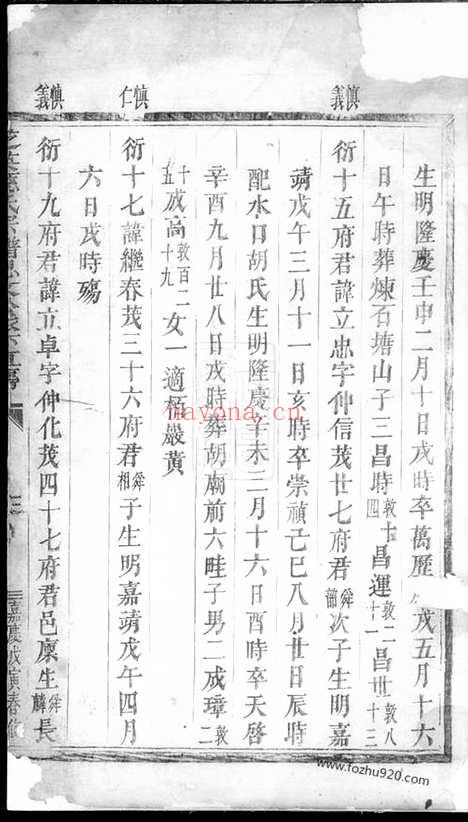 慎義
慎仁
慎義
生明隆慶壬申二月十日戌時卒萬歷戌五月十六
日午時葬煉石塘山子三昌時敦十四昌運敦二十一昌世敦八十三
衍十五府君諱立忠字仲信茂廿七府君舜次子生明嘉
靖戊午三月十一日亥時卒崇禎己巳八月廿日辰時
配水口胡氏生明隆慶辛未三月十六日酉時卒天啓
辛酉九月廿八日戌時葬胡廟前六畦子男二成璋敦二
十五成高敦百二十九女一適栢嚴黃
衍十七諱繼春茂三十六府君舜相子生明嘉靖戊午四月
六日戌時殤
衍十九府君諱立卓字仲化茂四十七府君邑廩生舜麟長
nayona.cn
www.fozhu920.com